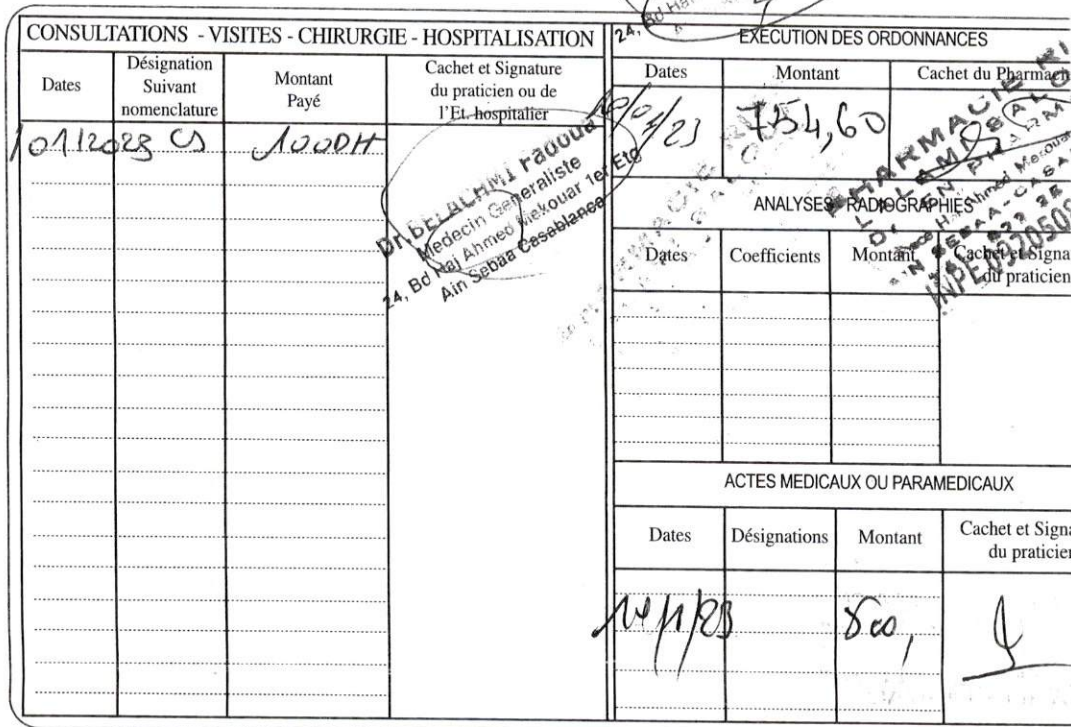 CONSULTATIONS - VISITES - CHIRURGIE - HOSPITALISATION
Dates
Désignation
Suivant
nomenclature
Montant
Payé
Cachet et Signature
du praticien ou de
l'Et. hospitalier
01/2023 CS 100DH
Dr. BELACHMI raoud
Medecin Generaliste
24, Bd Haj Ahmed Mekouar 1er Etg
Ain Sebaa Casablanca
24, Bd Ha
EXECUTION DES ORDONNANCES
Dates
Montant
Cachet du Pharmacien
/01/23
754,60
PHARMACIE
Ahmed Mekouar
AIN SEBAA - CASA
INPE
ANALYSES RADIOGRAPHIES
Dates
Coefficients
Montant
Cachet et Signa
du praticien
ACTES MEDICAUX OU PARAMEDICAUX
Dates
Désignations
Montant
Cachet et Signa
du praticien
/1/23